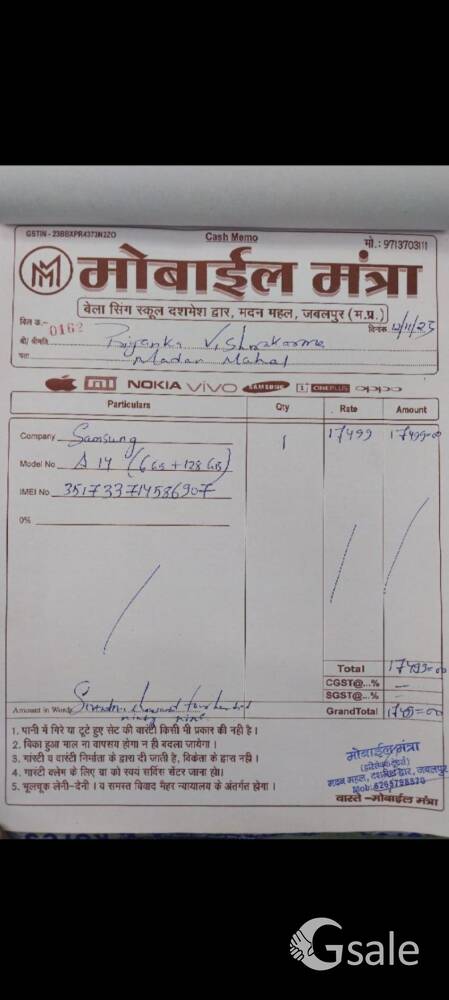 GSTIN - 23BBXPR4373N2ZO Cash Memo मो.: 9713703111
MM मोबाईल मंत्रा
बेला सिंग स्कूल दशमेश द्वार, मदन महल, जबलपुर (म.प्र.)
बिल क्र.- 0162 दिनांक
श्री/ श्रीमति Priyanka Vishwakarma
पता Madan Mahal
mi NOKIA vivo SAMSUNG 1 ONEPLUS oppo
Particulars Qty Rate Amount
Company Samsung 1 17499 17499=00
Model No. A 14 (6GB + 128 GB)
IMEI No. 351733714586907
0%
Total 17499=00
CGST@...% –
SGST@...% –
Amount in Words Seventeen thousand four hundred GrandTotal 17499=00
ninty nine
1. पानी में गिरे या टूटे हुए सेट की वारंटी किसी भी प्रकार की नही है।
2. बिका हुआ माल ना वापस होगा न ही बदला जायेगा।
3. गारंटी व वारंटी निर्माता के द्वारा दी जाती है, विक्रेता के द्वारा नही।
4. गारंटी क्लेम के लिए ग्राहको स्वयं सर्विस सेंटर जाना होगा।
5. भूलचूक लेनी-देनी। व समस्त विवाद न्यायालय के अंतर्गत होगा।
मोबाईल मंत्रा
मदन महल, दशमेश द्वार, जबलपुर
Mob:
वास्ते -मोबाईल मंत्रा
Gsale